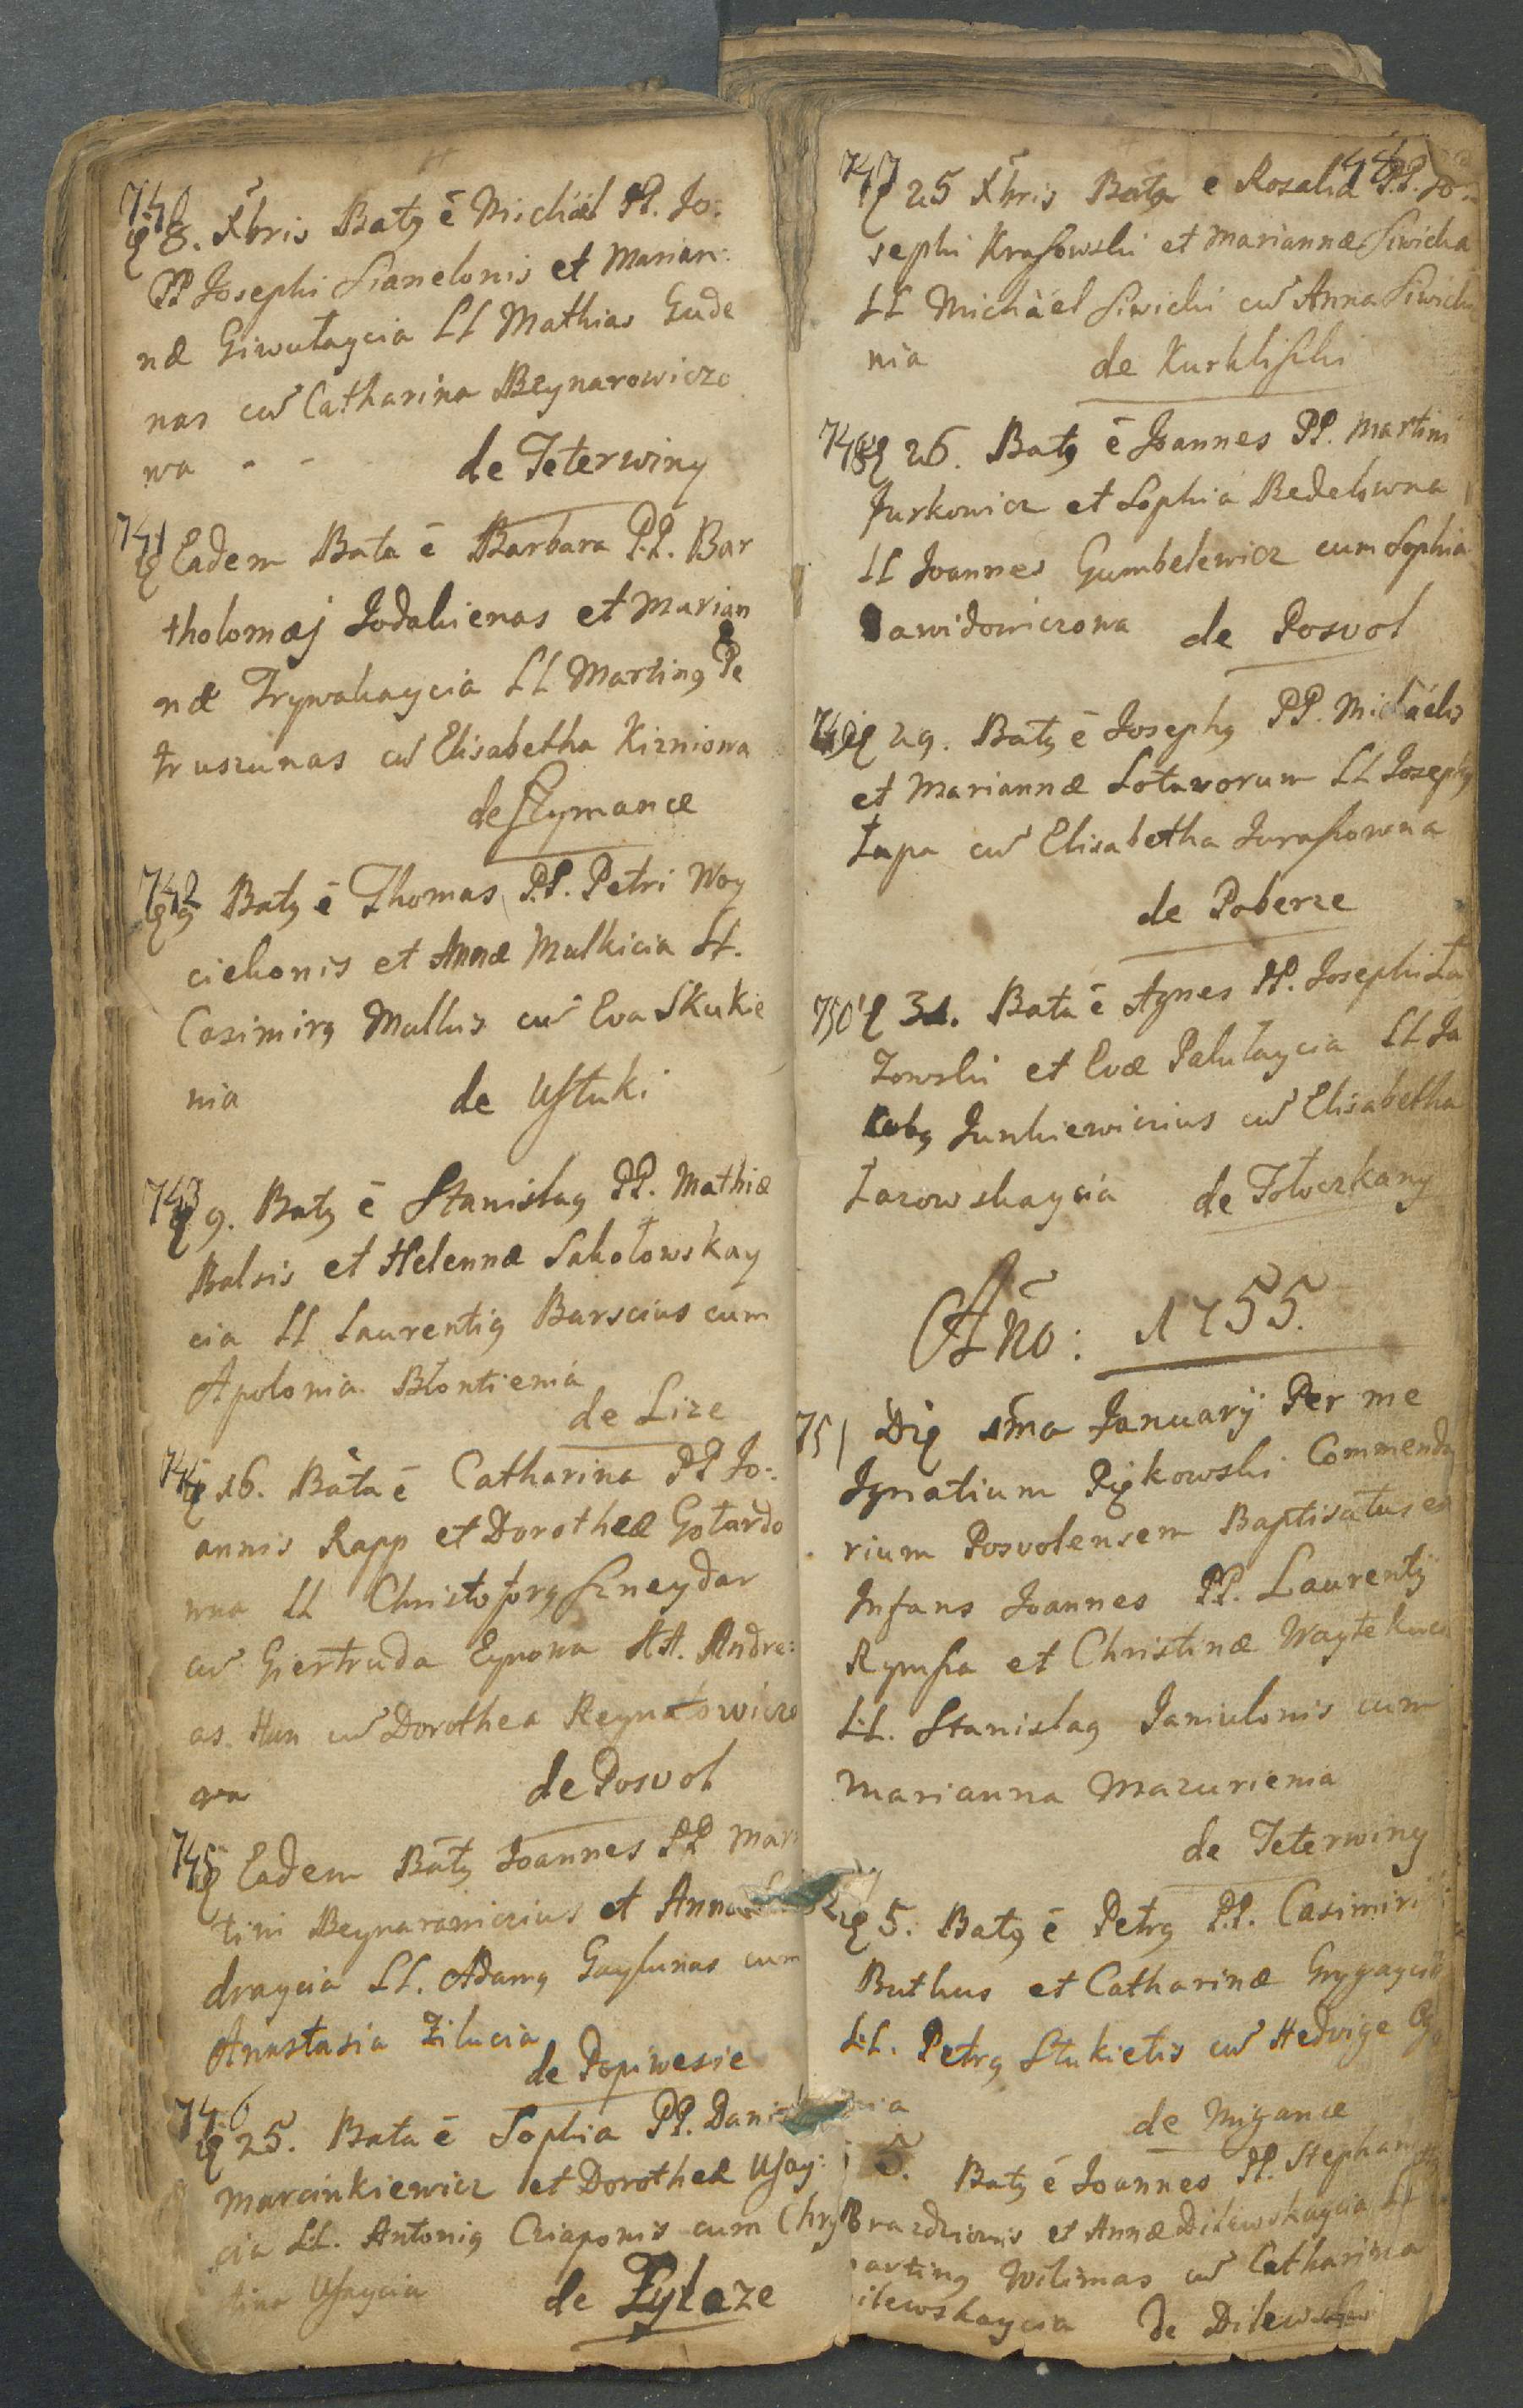 740
8. Xbris Batg ē Michäel PP. Jo:
PP Josephi Sianelonis et Marian:
næ Giwutaycia LL Mathias Gude
nas cū Catharina Beynarowiczo
wa - - de Teterwiny
741
Eadem Bata ē Barbara P.P. Bar
tholomæj Jodakienas et Marian
næ Trywakaycia LL Marting Pe
truszunas cū Elisabetha Kizniowa
de Szymance
742
9 Batg ē Thomas P.P. Petri Woy
ciekonis et Annæ Malkicia LL.
Casimirg Mallus cū Eva Skukie
nia de Ustuki
743
9. Batg ē Stanislag PP. Mathiæ
Balsis et Helennæ Sakołowskay
cia LL Laurentig Barscius cum
Apolonia Błontienia
de Lize
744
16. Bata ē Catharina PP Jo:
annis Rapp et Dorotheæ Gotardo
wna LL Christoforg Szneydar
cū Giertruda Eyrowa AA. Andre:
as Hun cū Dorothea Reynatowiczo
wa de Posvol
745
Eadem Batg Joannes PP Mar
tini Beynarowiczius et Anna
draycia LL. Adamg Gaylunas cum
Anastasia Zilucia
de Popiwesie
746
25. Bata ē Sophia PP. Dani
Marcinkiewicz et Dorotheæ Usay:
cia LL. Antonig Cziaponis cum Chry
stina Usaycia de Zylaze
747 48
25 Xbris Bata ē Rosalia P.P. Jo:
sephi Krasowski et Mariannæ Siwicka
LL Michäel Siwicki cū Anna Siwicke
nia de Kurkliszki
748
26. Batg ē Joannes PP. Martini
Jurkowicz et Sophia Bedelowna
LL Joannes Gumbelewicz cum Sophia
Dawidowiczowa de Posvol
749
29. Batg ē Josephg PP. Michäelis
et Mariannæ Lotuvorum LL Josephg
Łapa cū Elisabetha Juraszowna
de Poberze
750
31. Bata ē Agnes PP. Josephi Ła
zowski et Evæ Palutaycia LL Ja
cobg Junkiewiczius cū Elisabetha
Łazowskaycia de Tołoczkany
Año: 1755.
751 Die 1ma Januarij Per me
Ignatium Piękowski Commenda
rium Posvolensem Baptisatus est
Infans Joannes PP. Laurentij
Rymsza et Christinæ Waytekuca
LL. Stanislag Janiulonis cum
Marianna Mazurienia
de Teterwiny
5. Batg ē Petrg P.P. Casimiri
Buthus et Catharinæ Grygaycia
LL. Petrg Stukietis cū Hedvige
nia de Migance
5. Batg ē Joannes PP. Stephani
Brazdzionis et Annæ Dilewskaycia LL
arting Wilimas cū Catharina
ilewskaycia de Dilewszki